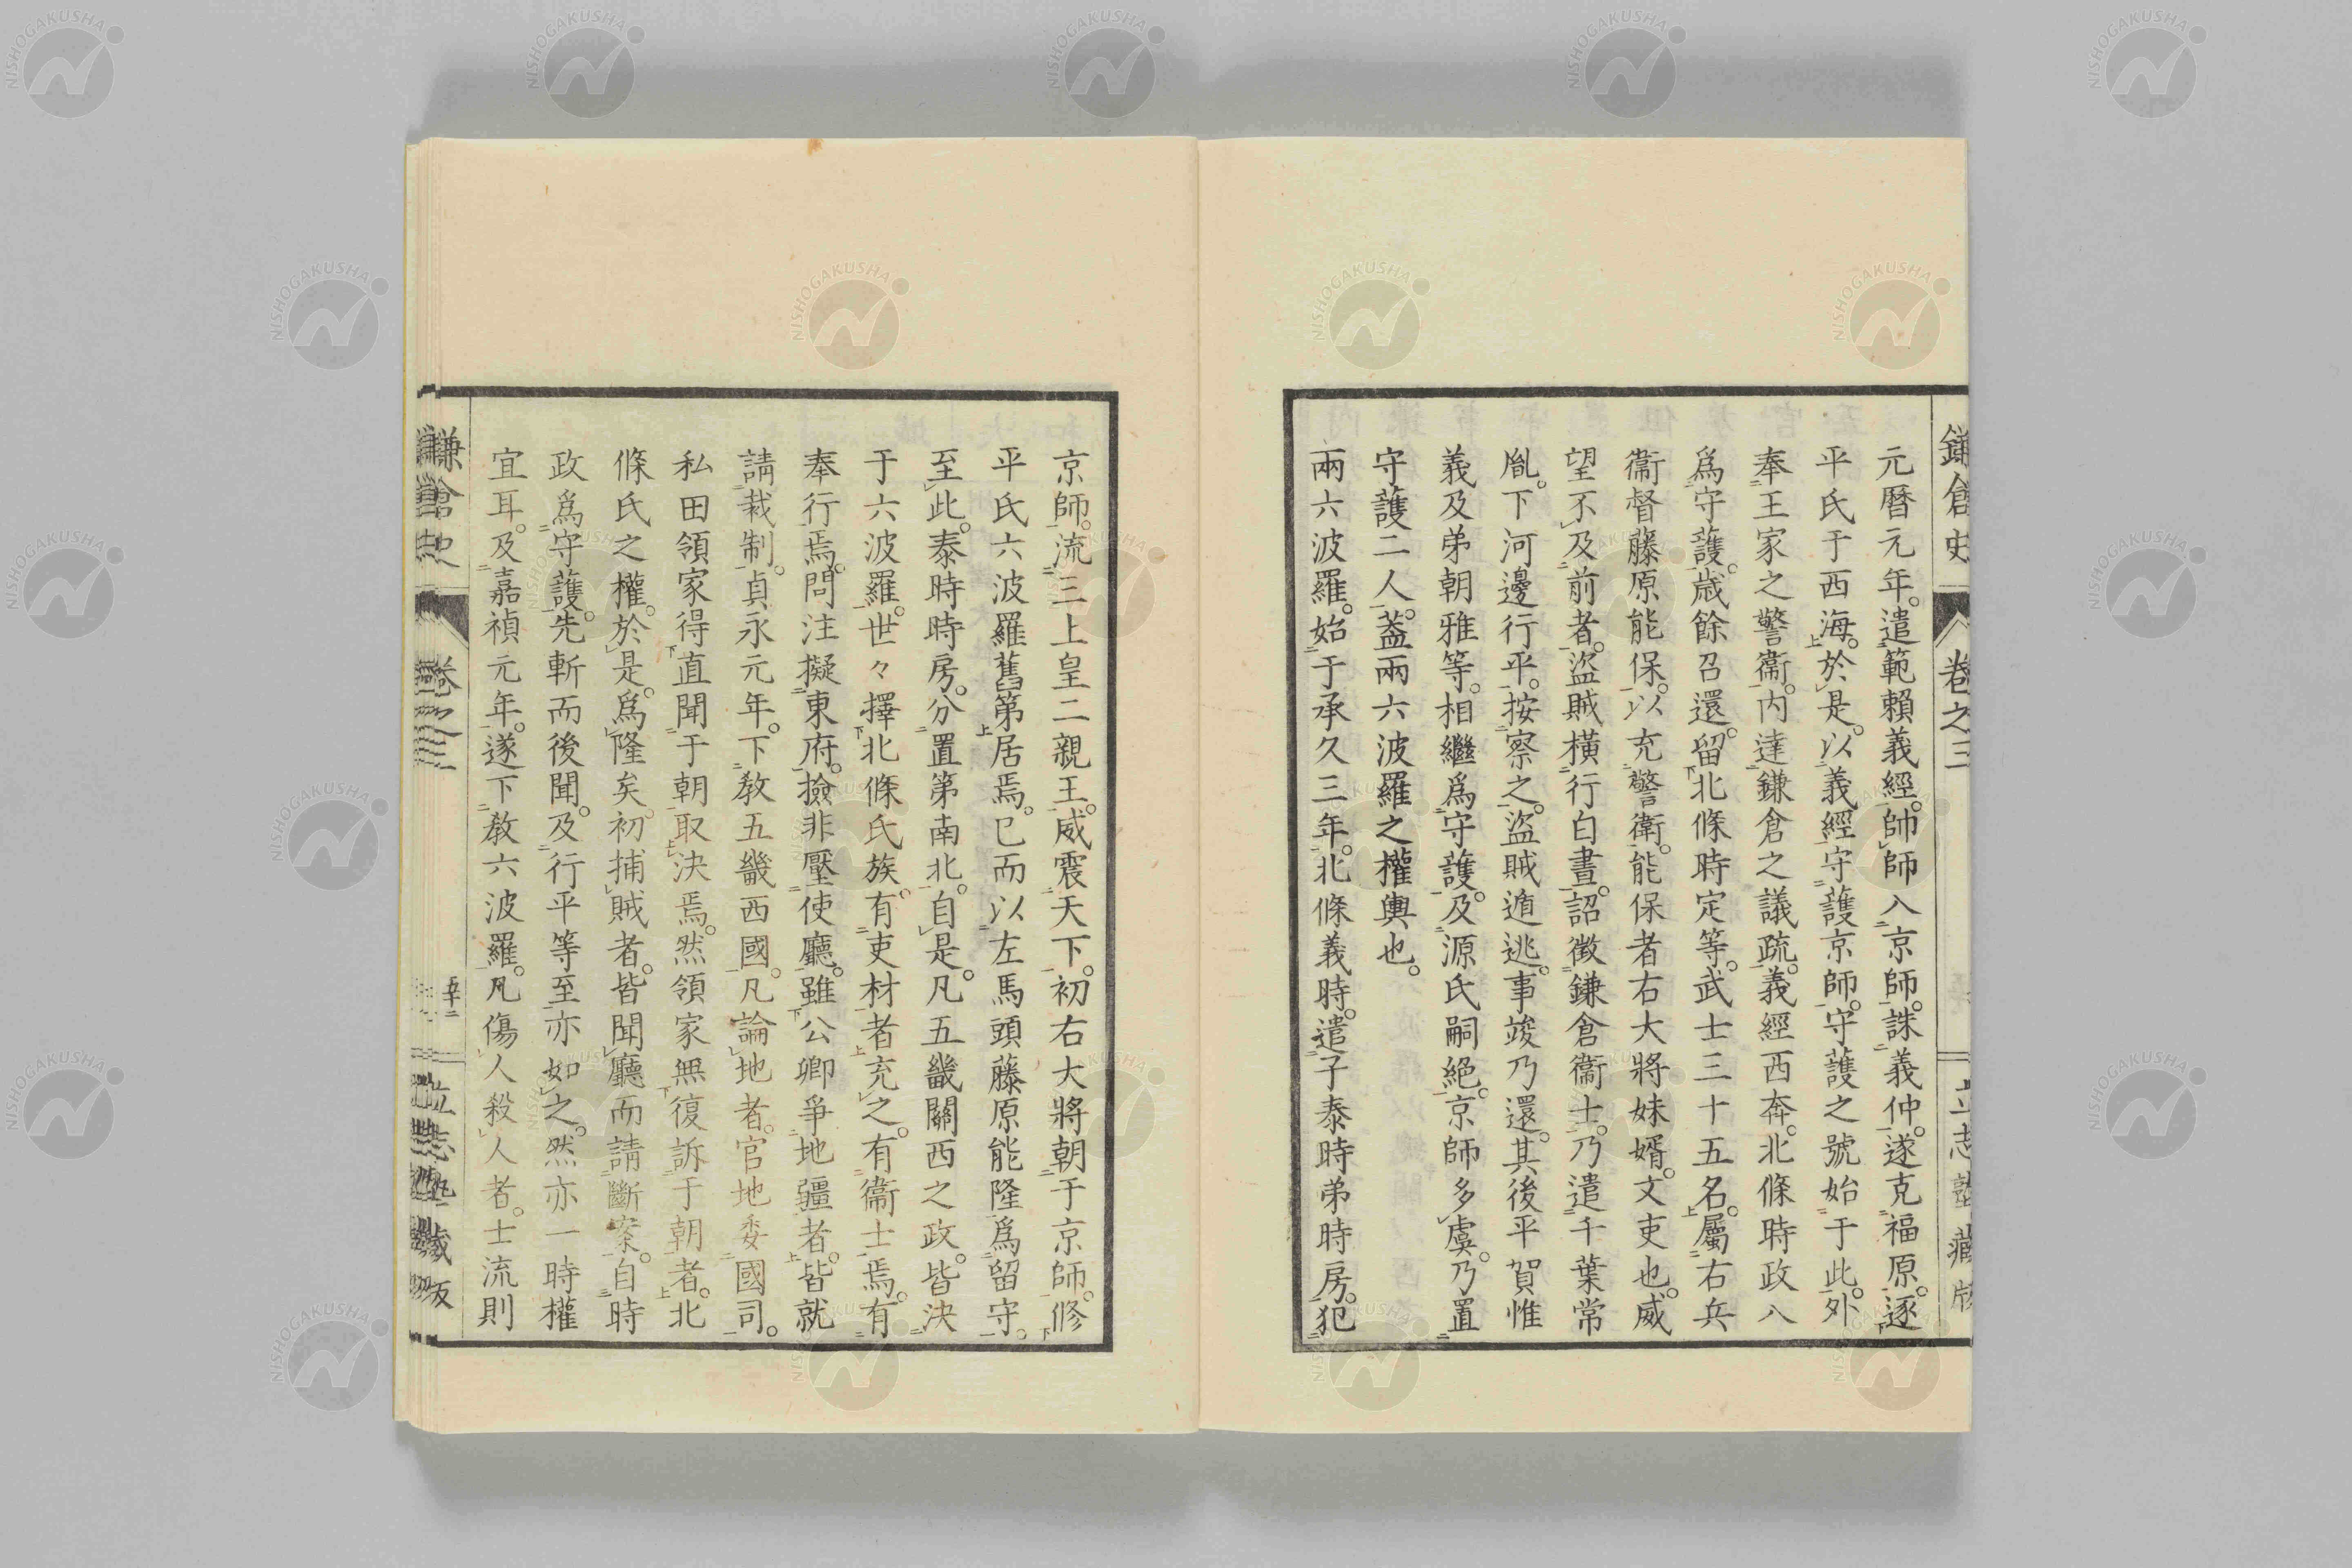 鎌倉史 卷之三 立志塾藏版
元曆元年。遣範賴義經。帥師入京師。誅義仲。遂克福原。逐
平氏于西海。於是。以義經守護京師。守護之號始于此。外
奉王家之警衞。内達鎌倉之議疏。義經西奔。北條時政八
爲守護。歳餘召還。留北條時定等。武士三十五名。屬右兵
衞督藤原能保。以充警衛。能保者右大將妹婿。文吏也。威
望不及前者。盜賊橫行白晝。詔徴鎌倉衞士。乃遣千葉常
胤。下河邊行平。按察之。盜賊遁逃。事竣乃還。其後平賀惟
義及弟朝雅等。相繼爲守護。及源氏嗣絕。京師多虞。乃置
守護二人。蓋兩六波羅之權輿也。
兩六波羅。始于承久三年。北條義時。遣子泰時弟時房。犯
京師。流三上皇二親王。威震天下。初右大將朝于京師。修
平氏六波羅舊第居焉。已而以左馬頭藤原能隆爲留守。
至此。泰時時房。分置第南北。自是。凡五畿關西之政。皆決
于六波羅。世々擇北條氏族。有吏材者充之。有衞士焉。有
奉行焉。問注擬東府。撿非壓使廳。雖公卿爭地疆者。皆就
請裁制。貞永元年。下敎五畿西國。凡論地者。官地委國司。
私田領家得直聞于朝取決焉。然領家無復訴于朝者。北
條氏之權。於是。爲隆矣。初捕賊者。皆聞廳而請斷案。自時
政爲守護。先斬而後聞。及行平等至亦如之。然亦一時權
宜耳。及嘉禎元年。遂下敎六波羅。凡傷人殺人者。士流則
鎌倉史 卷之三 立志塾藏版